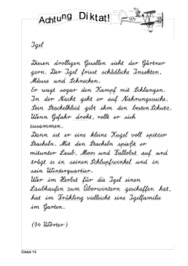 Achtung Diktat!
Igel
Diesen drolligen Gesellen sieht der Gärtner
gern. Der Igel frisst schädliche Insekten,
Mäuse und Schnecken.
Er wagt sogar den Kampf mit Schlangen.
In der Nacht geht er auf Nahrungssuche.
Sein Stachelkleid gibt ihm den besten Schutz.
Wenn Gefahr droht, rollt er sich
zusammen.
Dann ist er eine kleine Kugel voll spitzer
Stacheln. Mit den Stacheln spießt er
mitunter Laub, Moos und Fallobst auf und
trägt es in seinen Schlupfwinkel und in
sein Winterquartier.
Wer im Herbst für die Igel einen
Laubhaufen zum Überwintern geschaffen hat,
hat im Frühling vielleicht eine Igelfamilie
im Garten.
(94 Wörter)